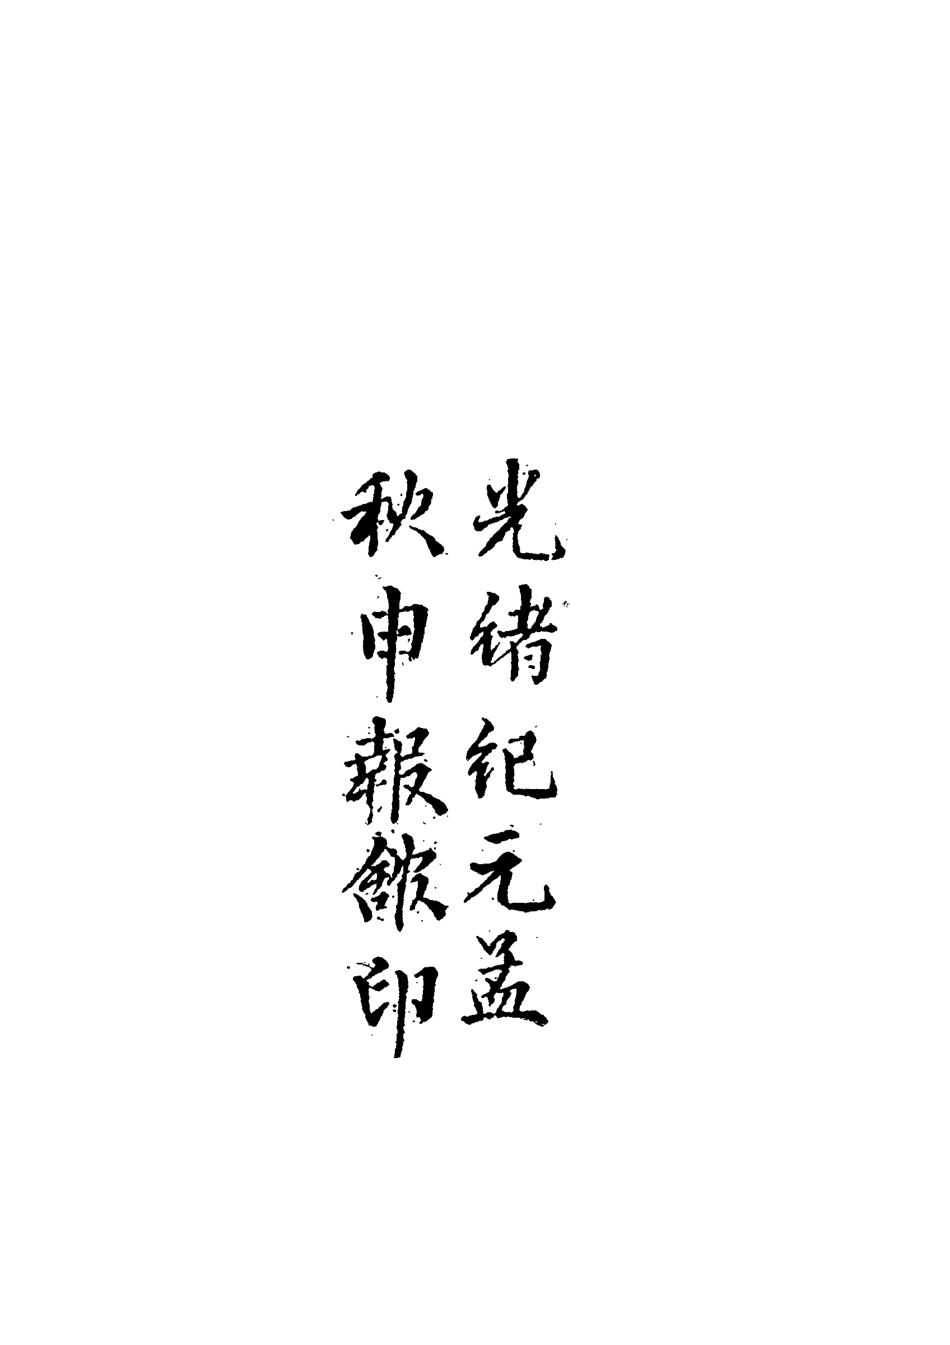 光緒紀元孟
秋申報舘印